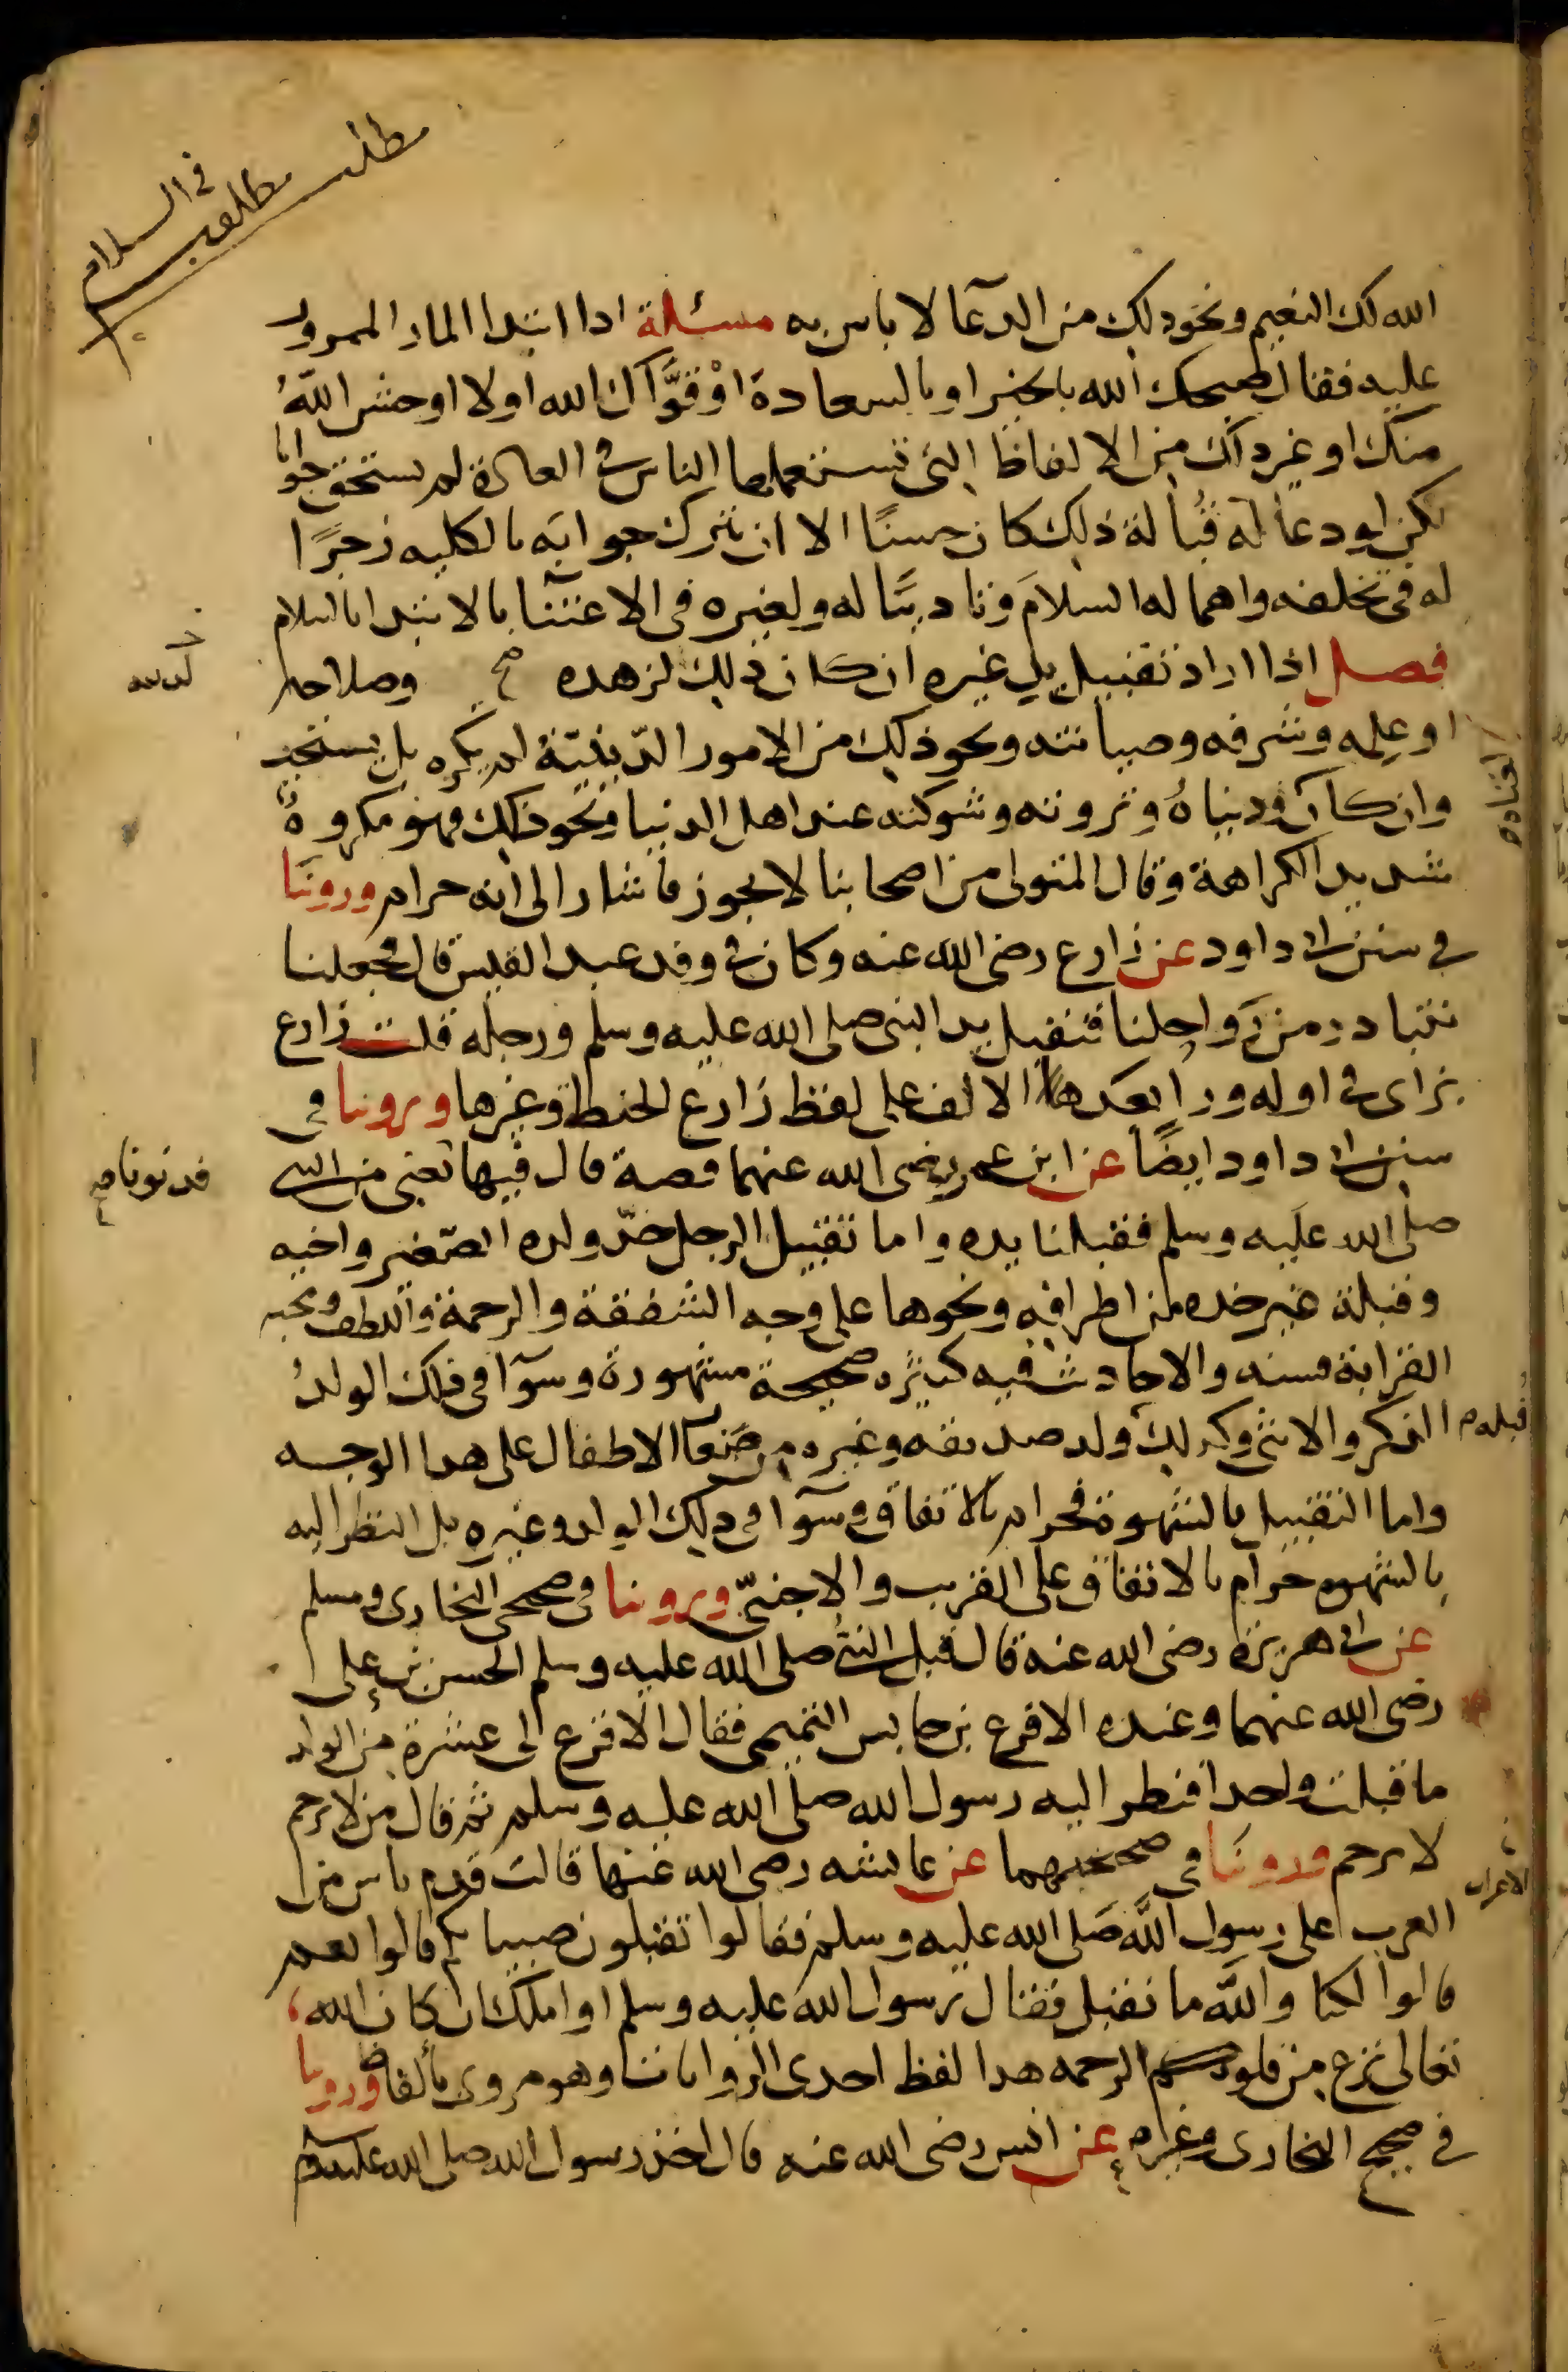 مطلب
مطلب
في السلام
الله لك النعيم ونحو ذلك من الدعآ لا باس به مسئلة ادا ابتدا المار الممرور
عليه فقال صبحك الله بالخير او بالسعادة اوْ قوَّاك الله اولا اوحش اللهُ
منك او غير ذلك من الالفاظ التي تستعملها الناس في العادة لم يستحق جوابا
لكن لو دعا له قُبالة ذلك كان حسنًا الا ان يترك جوابه بالكليه زجرًا
له في تخلفه واهماله السلامَ وتاديبًا له ولغيره في الاعتنآ بالابتدا بالسلام
فصل اذا اراد تقبيل يد غيره ان كان ذلك لزهده وصلاحه
او علمه وشرفه وصيانته ونحو ذلك من الامور الدّينيّة لم يكره بل يستحب
وان كان لغناه ودنياهُ وثروته وشوكته عند اهل الدنيا ونحو ذلك فهو مكروهٌ
شديد الكراهة وقال المتولي من اصحابنا لا يجوز فاشار الى انه حرام وروينَا
في سنن ابي داود عن زارع رضي الله عنه وكان في وفد عبد القيس قال فجعلنا
نتبادر من رواحلنا فنقبل يد النبي صلى الله عليه وسلم ورجله قلت زارع
بزاي في اوله ورا بعد الالف على لفظ زارع الحنطة وغيرها وروينا في
سنن ابي داود ايضًا عن ابن عمر رضي الله عنهما قصة قال فيها فدنونا يعني من النبي
صلى الله علَيه وسلم فقبلنا يده واما تقبيل الرجل خدّ ولده الصّغير واخيه
وقبلة غير خده من اطرافه ونحوها على وجه الشفقة والرحمة واللطف ومحبه
القرابة فسنه والاحاديث فيه كثيره صحيحة مشهورة وسوآ في ذلك الولدُ
الذكر والانثى وكذلك قبله ولد صديقه وغيره من صغار الاطفال على هدا الوجه
واما التقبيل بالشهوة فحرام بالاتفاق وسوآ في ذلك الولد وغيره بل النظر اليه
بالشهوه حرام بالاتفاق على القريب والاجنبيّ وروينا في صحيحي البخاري ومسلم
عن ابي هريرة رضي الله عنه قال قبل النبيُّ صلى الله عليه وسلم الحسن بن علي
رضي الله عنهما وعنده الاقرع بن حابس التميمي فقال الاقرع ان لي عشرة من الولد
ما قبلت واحدا فنظر اليه رسول الله صلى الله عليه وسلم ثم قال من لا يرحم
لا يرحم وروينَا في صحيحيهما عن عايشه رضي الله عنها قالت قدم ناس من الاعراب
العرب على رسول اللَّه صَلى الله عليه وسلم فقالوا تقبلون صبيانكم قالوا نعم
قالوا لكنا واللَّه ما نقبل فقال رسول الله عليه وسلم او املك ان كان الله
تعالى نزع من قلوبكم الرحمه هدا لفظ احدى الروايات وهو مروي بألفاظ وروينا
في صحيح البخاري وغيره عن انس رضي الله عنه قال اخذ رسول الله صلى الله عليه وسلم